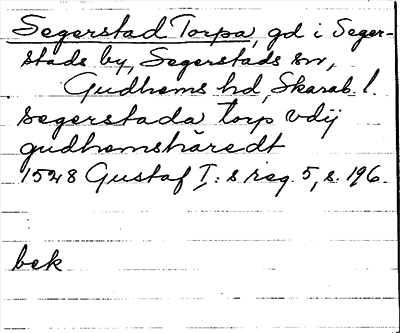 Segerstad Torpa, gd i Seger-
stads by, Segerstads sn,
Gudhems hd, Skarab. l.
segerstada torp vdij
gudhemshäredt
1528 Gustaf I:s reg. 5, s. 196.
bek